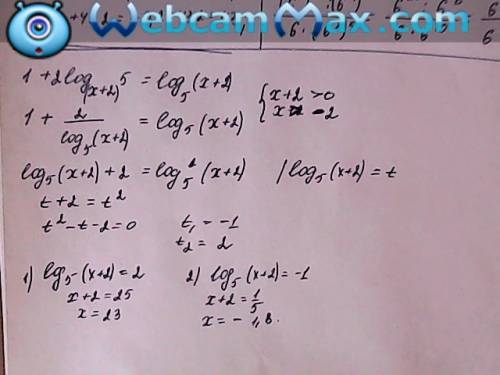 WebcamMax.com
1 + 2log_(x+2) 5 = log_5 (x+2)
{ x+2 > 0
x -2
1 + 2/log_5 (x+2) = log_5 (x+2)
log_5 (x+2) + 2 = log_5^2 (x+2) / log_5 (x+2) = t
t + 2 = t^2
t^2 - t - 2 = 0 t_1 = -1
t_2 = 2
1) log_5 (x+2) = 2 2) log_5 (x+2) = -1
x+2 = 25 x+2 = 1/5
x = 23 x = - 1,8.